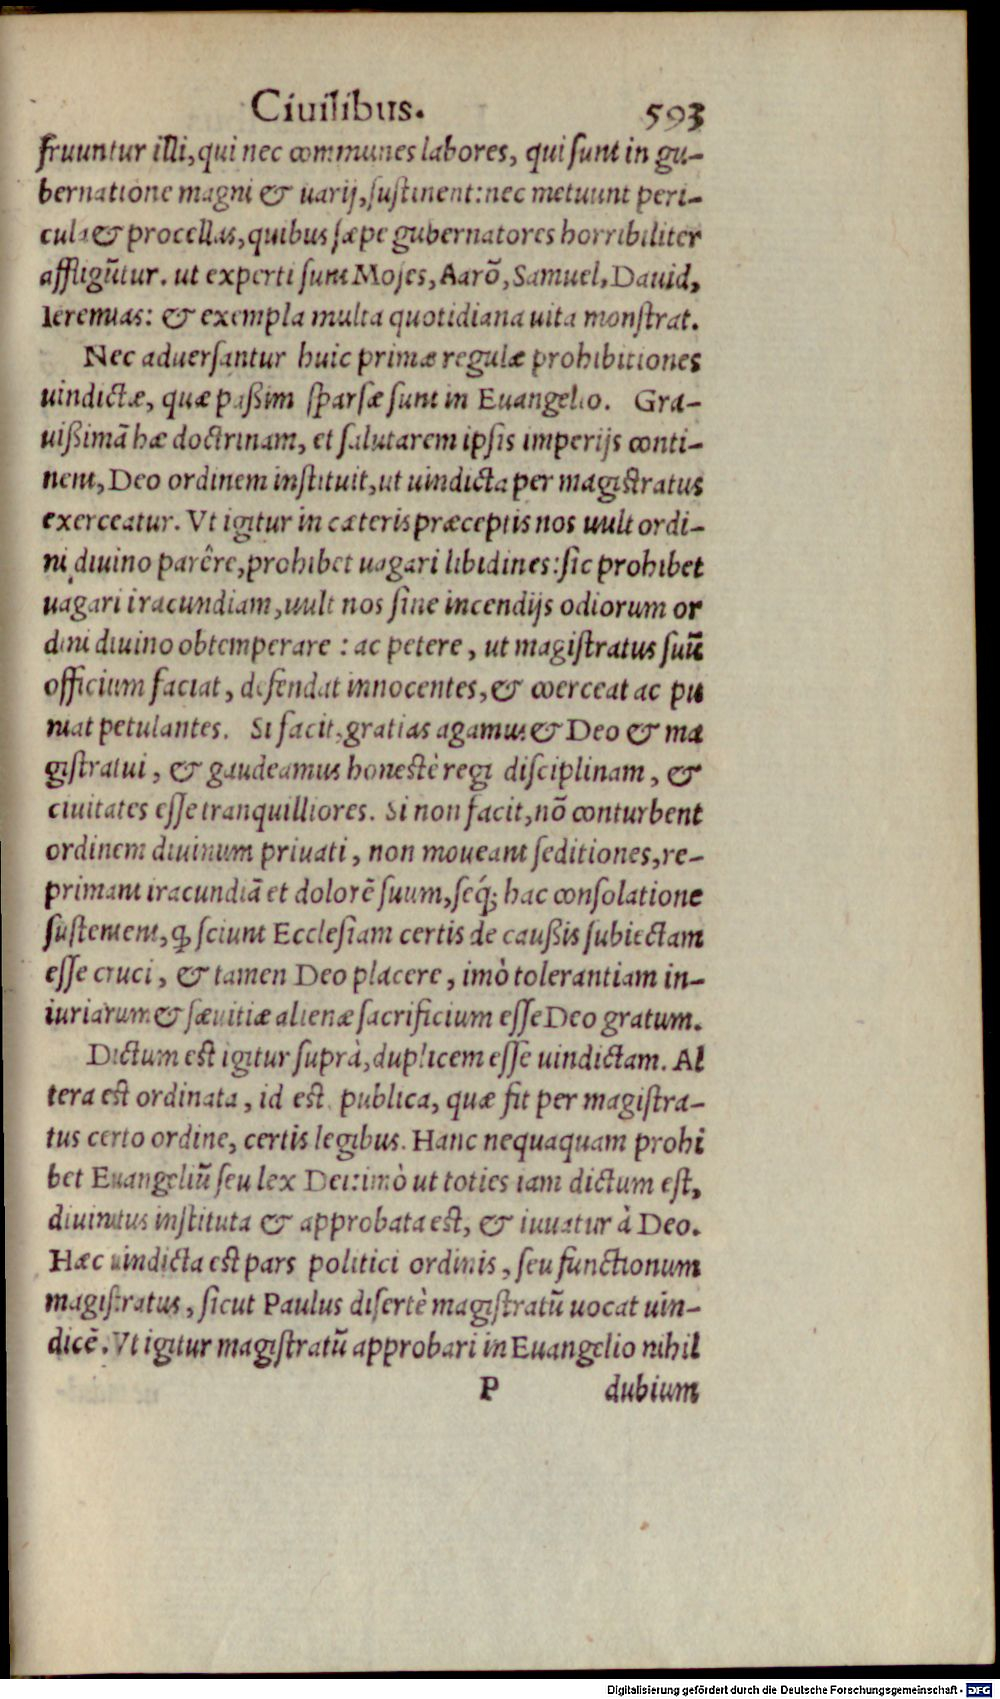 Ciuilibus. 593
fruuntur illi, qui nec communes labores, qui sunt in gu-
bernatione magni & uarij, sustinent: nec metuunt peri-
cula & procellas, quibus sæpe gubernatores horribiliter
affligũtur. ut experti sunt Moses, Aarõ, Samuel, Dauid,
Ieremias: & exempla multa quotidiana uita monstrat.
Nec aduersantur huic primæ regulæ prohibitiones
uindictæ, quæ paßim sparsæ sunt in Euangelio. Gra-
uißimã hæ doctrinam, et salutarem ipsis imperijs conti-
nent, Deo ordinem instituit, ut uindicta per magistratus
exerceatur. Vt igitur in cæteris præceptis nos uult ordi-
ni diuino parêre, prohibet uagari libidines: sic prohibet
uagari iracundiam, uult nos sine incendijs odiorum or
dini diuino obtemperare : ac petere, ut magistratus suũ
officium faciat, defendat innocentes, & coerceat ac pu
niat petulantes. Si facit, gratias agamus & Deo & ma
gistratui, & gaudeamus honestè regi disciplinam, &
ciuitates esse tranquilliores. Si non facit, nõ conturbent
ordinem diuinum priuati, non moueant seditiones, re-
primant iracundiã et dolorẽ suum, seq́; hac consolatione
sustentent, ꝙ sciunt Ecclesiam certis de caußis subiectam
esse cruci, & tamen Deo placere, imò tolerantiam in-
iuriarum & sæuitiæ alienæ sacrificium esse Deo gratum.
Dictum est igitur suprà, duplicem esse uindictam. Al
tera est ordinata, id est publica, quæ fit per magistra-
tus certo ordine, certis legibus. Hanc nequaquam prohi
bet Euangeliũ seu lex Dei: imò ut toties iam dictum est,
diuinitus instituta & approbata est, & iuuatur à Deo.
Hæc uindicta est pars politici ordinis, seu functionum
magistratus, sicut Paulus disertè magistratũ uocat uin-
dicẽ. Vt igitur magistratũ approbari in Euangelio nihil
P dubium
Digitalisierung gefördert durch die Deutsche Forschungsgemeinschaft - DFG